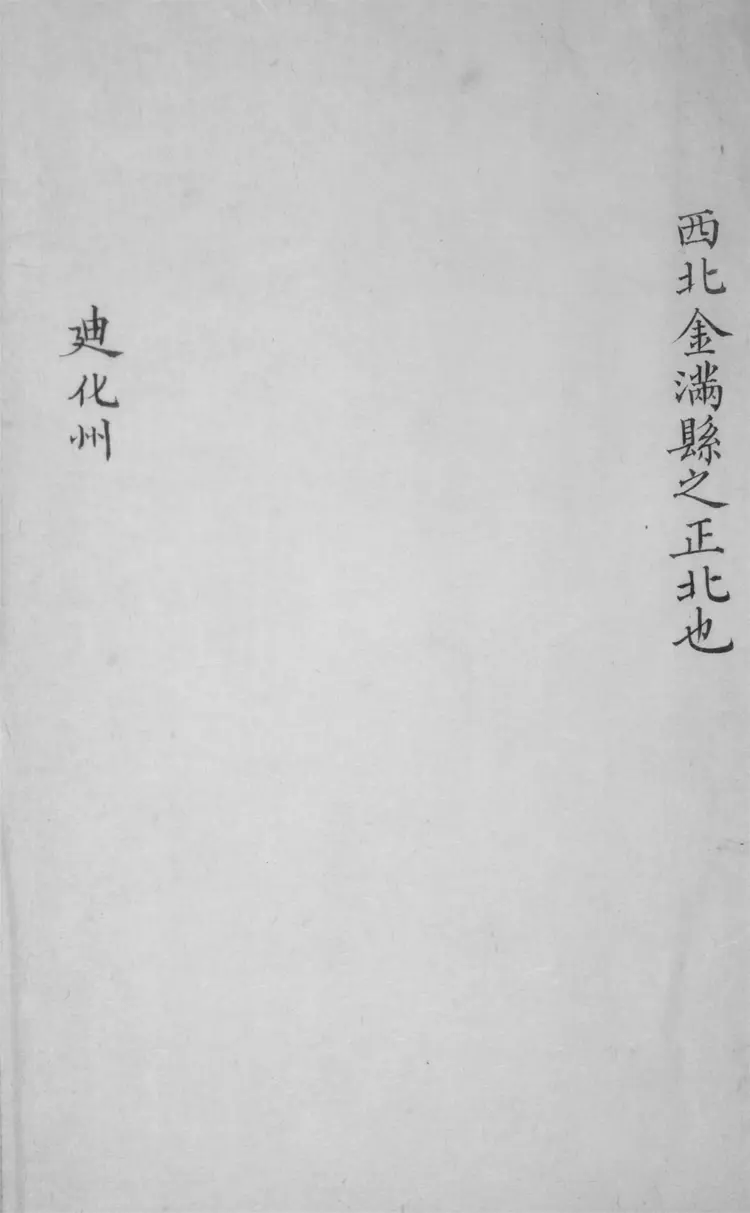 西北金滿縣之正北也
廸化州